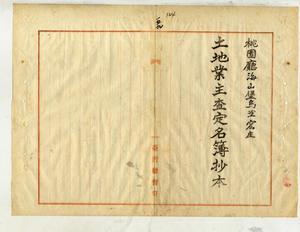 桃園廳海山堡烏塗窟庄
土地業主查定名簿抄本
臺灣總督府